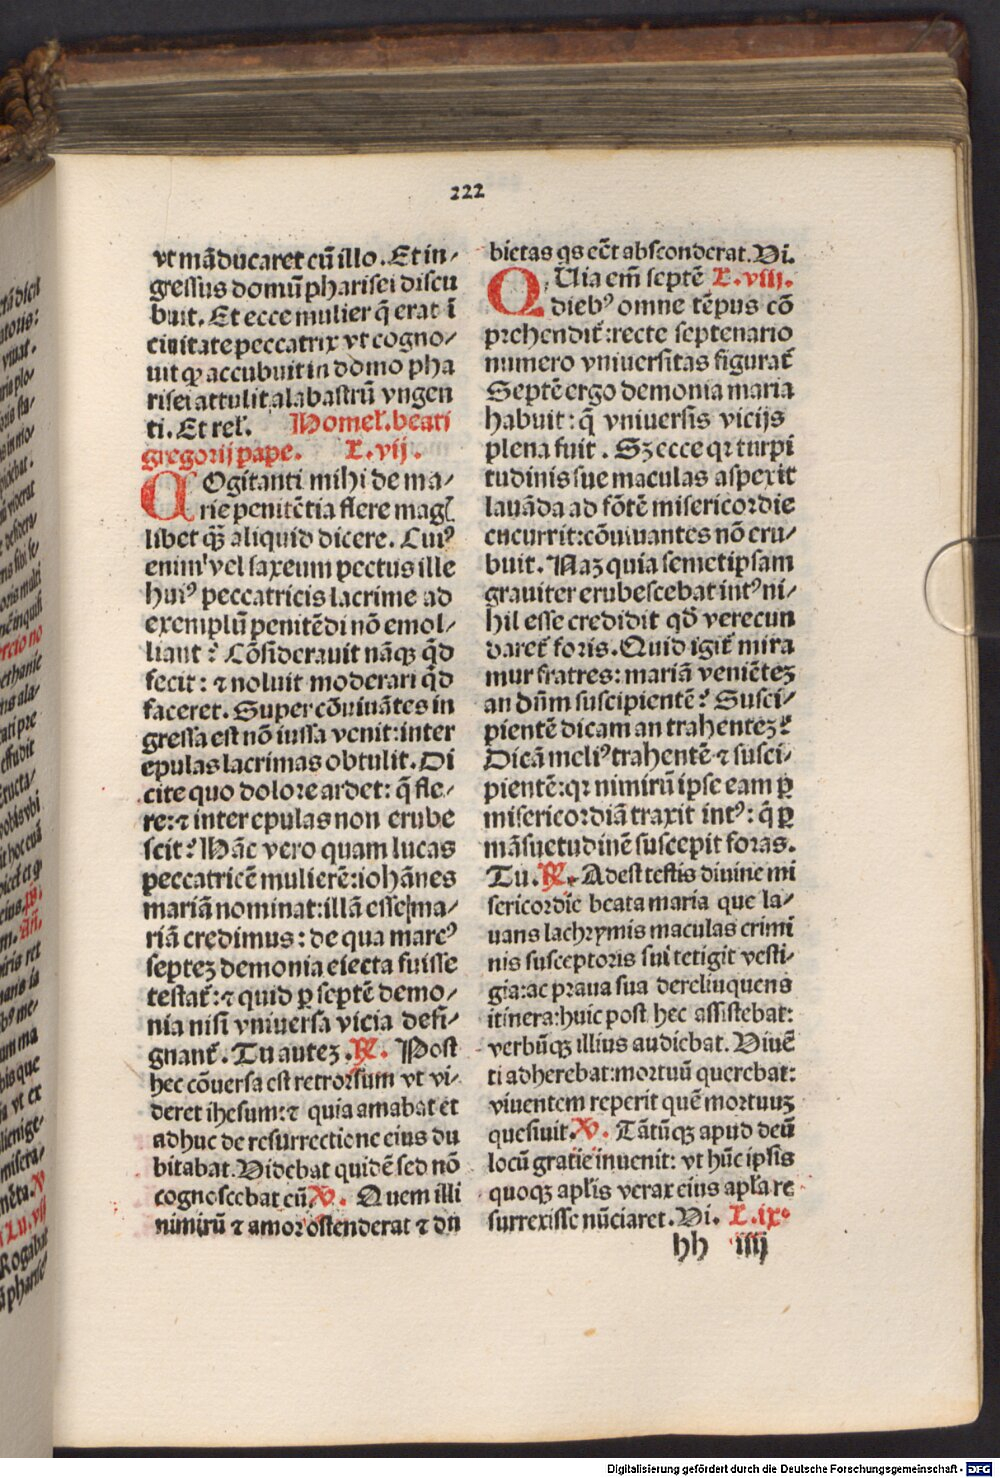 222
vt mãducaret cũ illo. Et in⸗
gressus domũ pharisei discu
buit. Et ecce mulier q̃ erat ĩ
ciuitate peccatrix vt cogno⸗
uit qꝫ accubuit in domo pha
risei attulit alabastrũ vngen
ti. Et rel̃. Homel̃. beati
gregorij pape. L. vij.
COgitanti mihi de ma⸗
rie penitẽtia flere mag̃
libet qꝫ̃ aliquid dicere. Cuiꝰ
enim vel saxeum pectus ille
huiꝰ peccatricis lacrime ad
exemplũ penitẽdi nõ emol⸗
liant? Cõsiderauit nãqꝫ qd̃
fecit: ⁊ noluit moderari qd̃
faceret. Super cõuiuãtes in
gressa est nõ iussa venit: inter
epulas lacrimas obtulit. Di
cite quo dolore ardet: q̃ fle⸗
re: ⁊ inter epulas non erube
scit? Hãc vero quam lucas
peccatricẽ mulierẽ: iohãnes
mariã nominat: illã esse ma⸗
riã credimus: de qua marcꝰ
septeꝫ demonia eiecta fuisse
testat̃: ⁊ quid ꝑ septẽ demo⸗
nia nisi vniuersa vicia desi⸗
gnant̃. Tu auteꝫ. ℟. Post
hec cõuersa est retrorsum vt vi⸗
deret ihesum: ⁊ quia amabat et
adhuc de resurrectione eius du
bitabat. Videbat quidẽ sed nõ
cognoscebat eũ ℣. Quem illi
nimirũ ⁊ amor ostenderat ⁊ du
bietas qs eẽt absconderat. Vi.
QUia em̃ septẽ L. viij.
diebꝰ omne tẽpus cõ
prehendit̃: recte septenario
numero vniuersitas figurat̃
Septẽ ergo demonia maria
habuit: q̃ vniuersis vicijs
plena fuit. Sꝫ ecce qꝛ turpi
tudinis sue maculas aspexit
lauãda ad fõtẽ misericordie
cucurrit: cõuiuantes nõ eru⸗
buit. Naꝫ quia semetipsam
grauiter erubescebat intꝰ ni⸗
hil esse credidit qd̃ verecun
daret̃ foris. Quid igit̃ mira
mur fratres: mariã veniẽteꝫ
an dñm suscipientẽ? Susci⸗
pientẽ dicam an trahenteꝫ?
Dicã meliꝰ trahentẽ ⁊ susci⸗
pientẽ: qꝛ nimirũ ipse eam ꝑ
misericordiã traxit intꝰ: q̃ ꝑ
mãsuetudinẽ suscepit foras.
Tu. ℟. Adest testis diuine mi
sericordie beata maria que la⸗
uans lachrymis maculas crimi
nis susceptoris sui tetigit vesti⸗
gia: ac praua sua derelinquens
itinera: huic post hec assistebat:
verbũqꝫ illius audiebat. Viuẽ
ti adherebat: mortuũ querebat:
viuentem reperit quẽ mortuuꝫ
quesiuit. ℣. Tãtũqꝫ apud deũ
locũ gratie inuenit: vt hũc ipsis
quoqꝫ apl̃is verax eius apl̃a re
surrexisse nũciaret. Vi. L. ix.
hh iiij
Digitalisierung gefördert durch die Deutsche Forschungsgemeinschaft - DFG